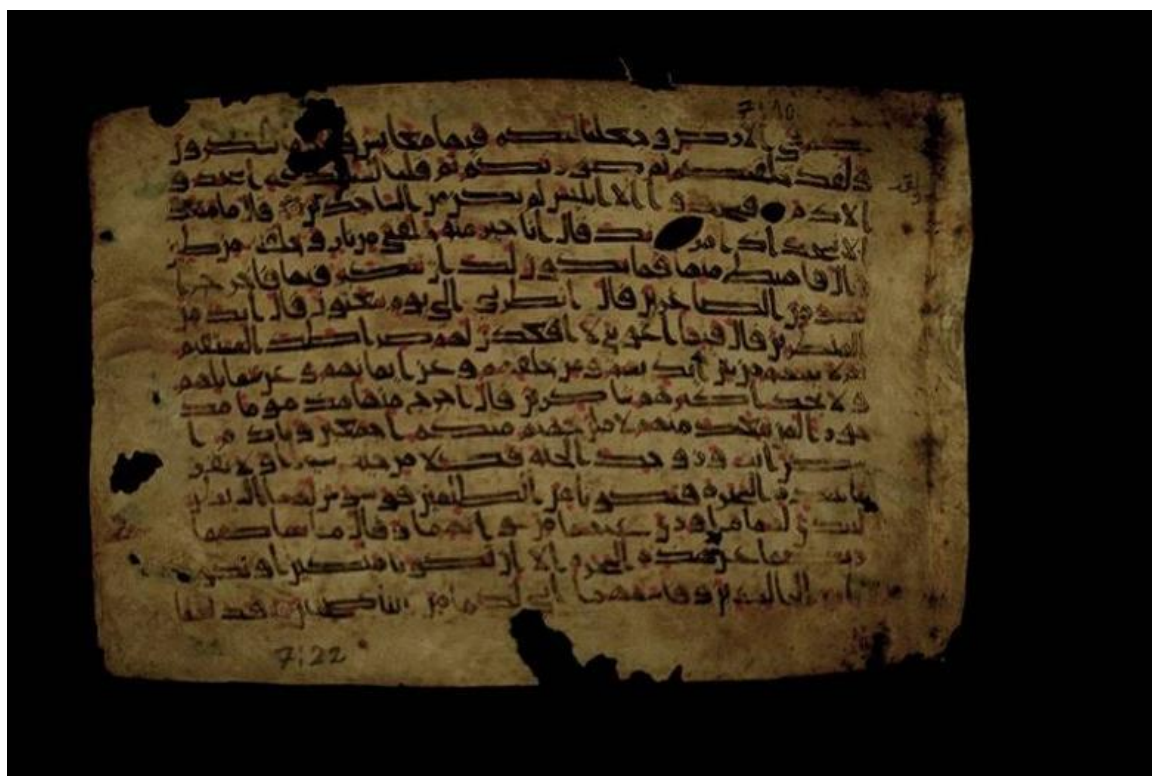 7:10
كم في الارض وجعلنا لكم فيها معايش تشكرون
ولقد خلقنكم ثم صورنكم ثم قلنا اسجدوا
لادم فسجدوا الا ابليس لم يكن من الساجدين قال ما منعك
الا تسجد اذ امرتك قال انا خير منه خلقتني من نار وخلقته من طين
قال فاهبط منها فما يكون لك ان تتكبر فيها فاخرج ا
نك من الصاغرين قال انظرني الى يوم يبعثون قال انك من
المنظرين قال فبما اغويتني لاقعدن لهم صراطك المستقيم
ثم لاتينهم من بين ايديهم ومن خلفهم وعن ايمانهم وعن شمايلهم
ولا تجد اكثرهم شاكرين قال اخرج منها مذوما مد
حورا لمن تبعك منهم لاملن جهنم منكم اجمعين ويادم ا
سكن انت وزوجك الجنة فكلا من حيث شيتما ولا تقر
با هذه الشجرة فتكونا من الظلمين فوسوس لهما الشيطن
ليبدي لهما ما وري عنهما من سواتهما وقال ما نهاكما
ربكما عن هذه الشجرة الا ان تكونا ملكين او تكو
نا من الخالدين وقاسمهما اني لكما لمن الناصحين فدلهما
7:22